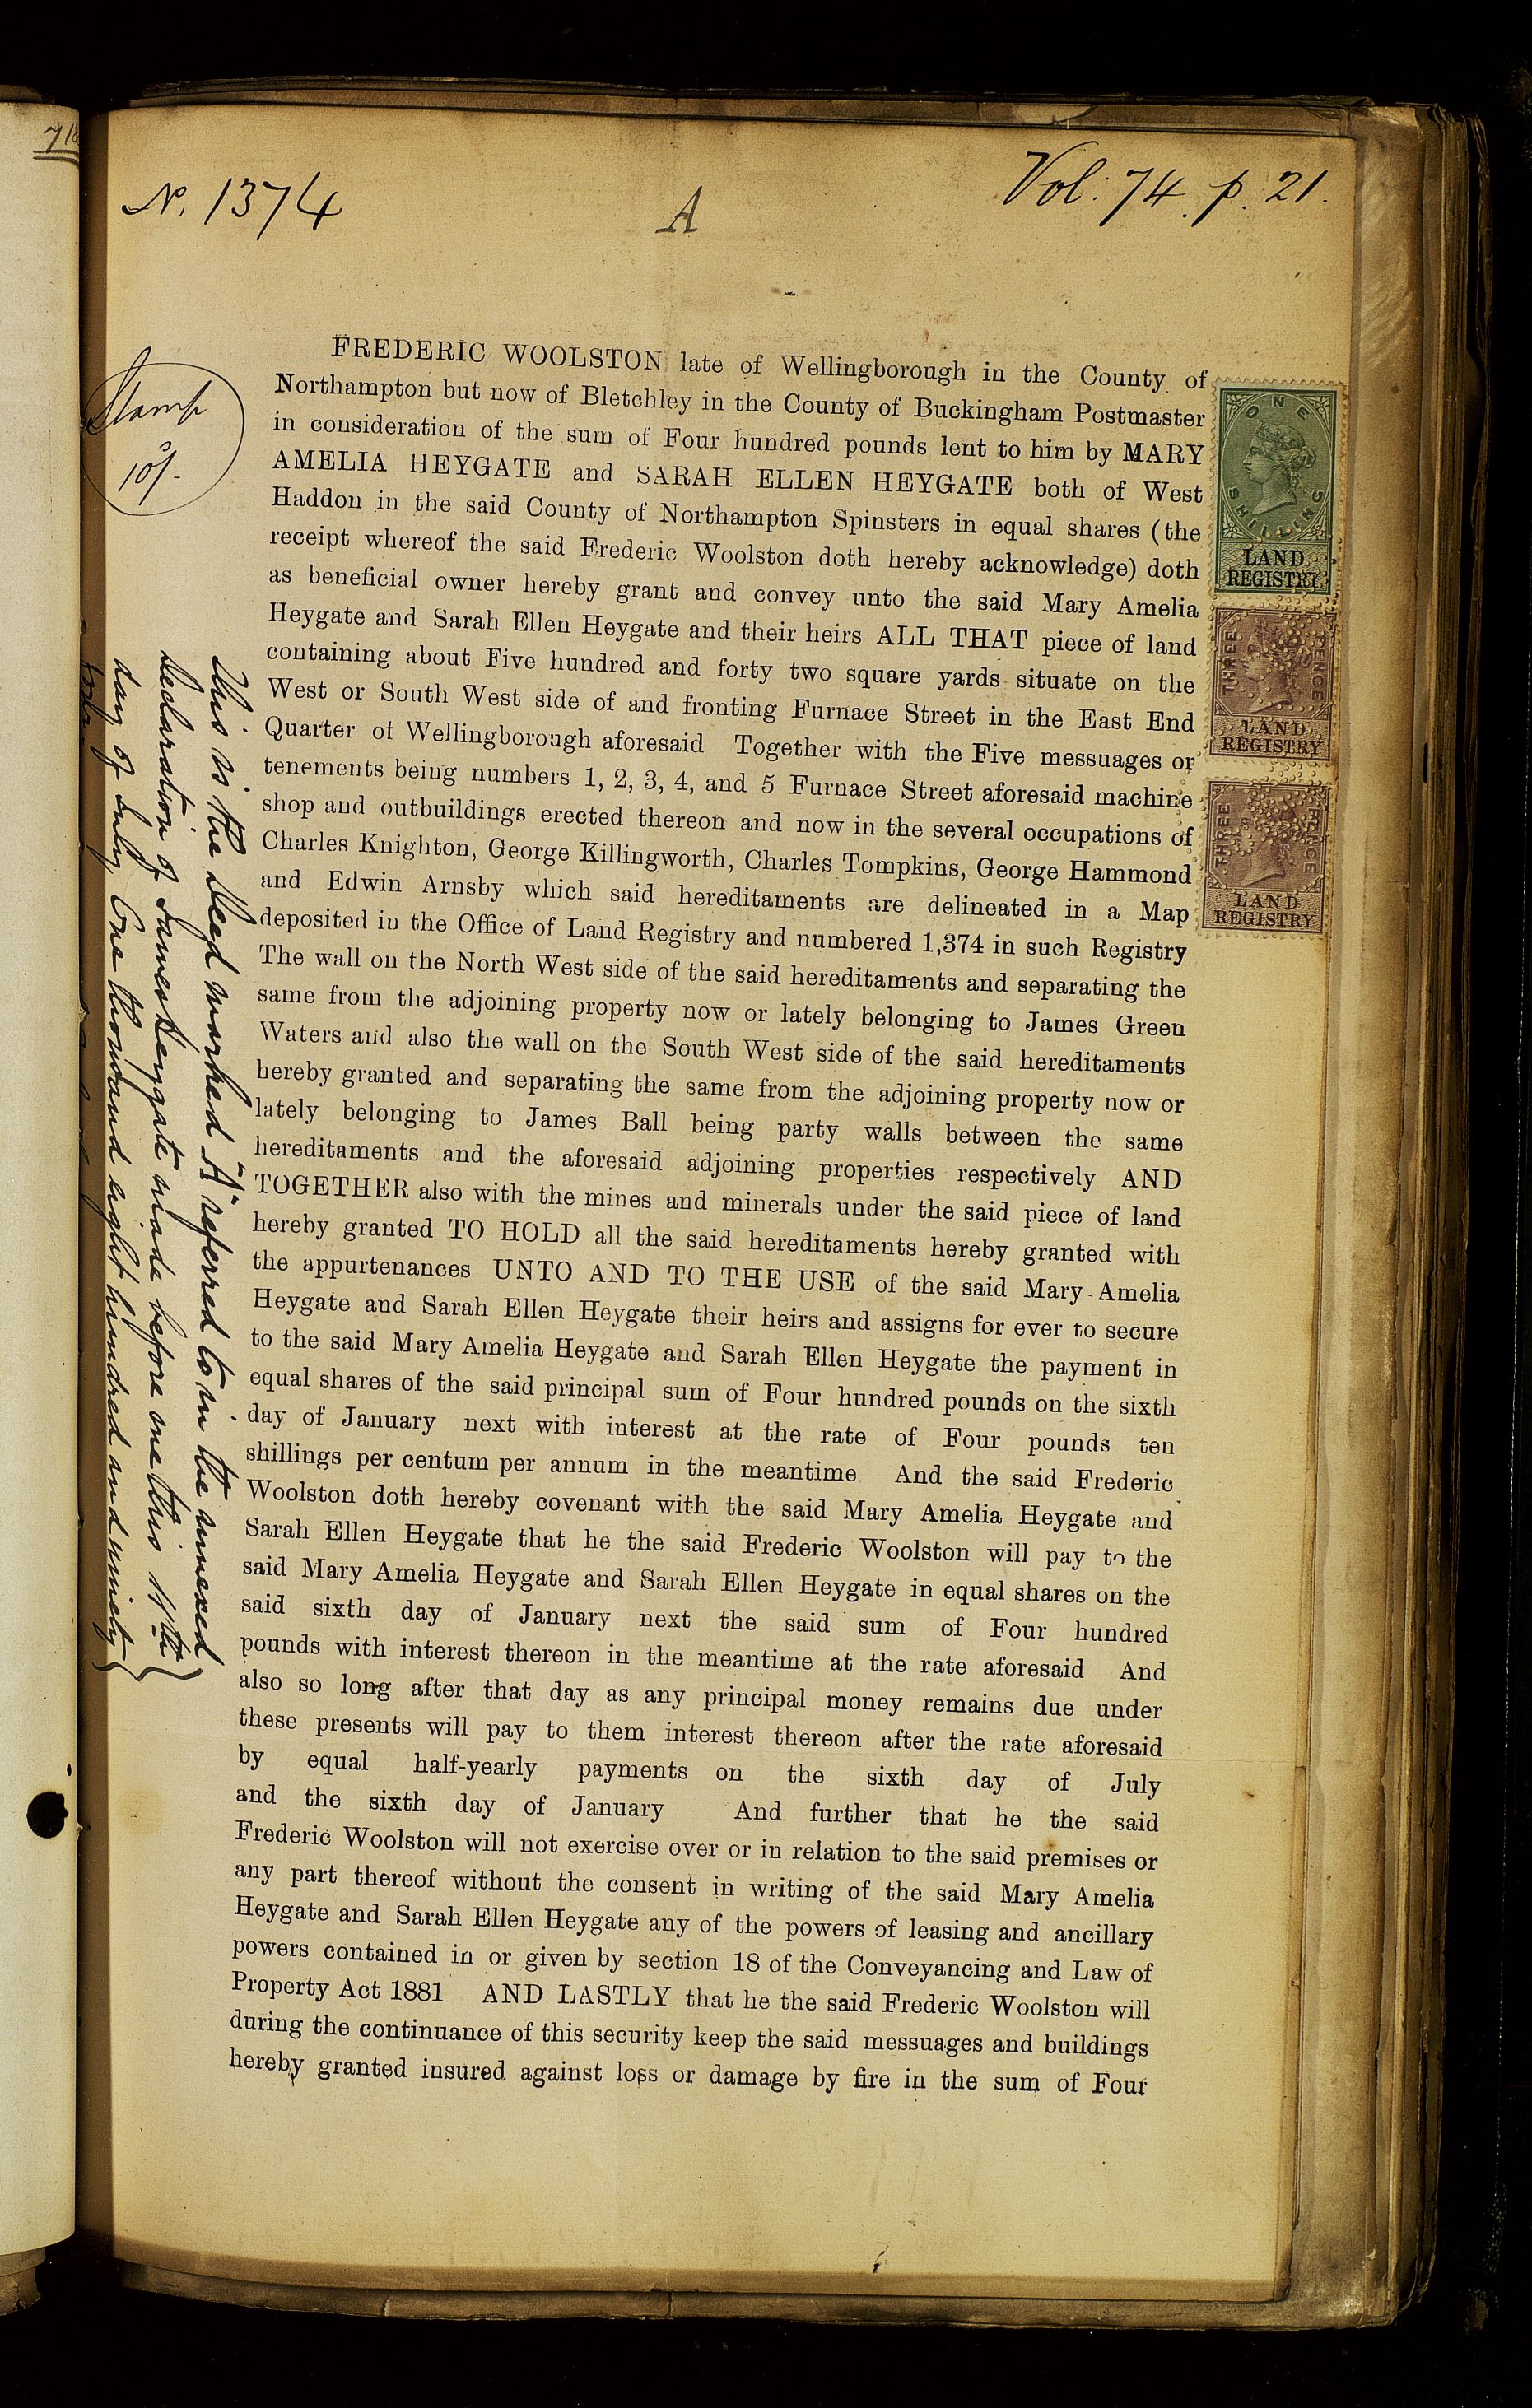 718
N. 1374
A
Vol: 74. p. 21.
Stamp
10/-
FREDERIC WOOLSTON late of Wellingborough in the County of
Northampton but now of Bletchley in the County of Buckingham Postmaster
in consideration of the sum of Four hundred pounds lent to him by MARY
AMELIA HEYGATE and SARAH ELLEN HEYGATE both of West
Haddon in the said County of Northampton Spinsters in equal shares (the
receipt whereof the said Frederic Woolston doth hereby acknowledge) doth
as beneficial owner hereby grant and convey unto the said Mary Amelia
Heygate and Sarah Ellen Heygate and their heirs ALL THAT piece of land
containing about Five hundred and forty two square yards situate on the
West or South West side of and fronting Furnace Street in the East End
Quarter of Wellingborough aforesaid Together with the Five messuages or
tenements being numbers 1, 2, 3, 4, and 5 Furnace Street aforesaid machine
shop and outbuildings erected thereon and now in the several occupations of
Charles Knighton, George Killingworth, Charles Tompkins, George Hammond
and Edwin Arnsby which said hereditaments are delineated in a Map
deposited in the Office of Land Registry and numbered 1,374 in such Registry
The wall on the North West side of the said hereditaments and separating the
same from the adjoining property now or lately belonging to James Green
Waters and also the wall on the South West side of the said hereditaments
hereby granted and separating the same from the adjoining property now or
lately belonging to James Ball being party walls between the same
hereditaments and the aforesaid adjoining properties respectively AND
TOGETHER also with the mines and minerals under the said piece of land
hereby granted TO HOLD all the said hereditaments hereby granted with
the appurtenances UNTO AND TO THE USE of the said Mary Amelia
Heygate and Sarah Ellen Heygate their heirs and assigns for ever to secure
to the said Mary Amelia Heygate and Sarah Ellen Heygate the payment in
equal shares of the said principal sum of Four hundred pounds on the sixth
day of January next with interest at the rate of Four pounds ten
shillings per centum per annum in the meantime And the said Frederic
Woolston doth hereby covenant with the said Mary Amelia Heygate and
Sarah Ellen Heygate that he the said Frederic Woolston will pay to the
said Mary Amelia Heygate and Sarah Ellen Heygate in equal shares on the
said sixth day of January next the said sum of Four hundred
pounds with interest thereon in the meantime at the rate aforesaid And
also so long after that day as any principal money remains due under
these presents will pay to them interest thereon after the rate aforesaid
by equal half-yearly payments on the sixth day of July
and the sixth day of January And further that he the said
Frederic Woolston will not exercise over or in relation to the said premises or
any part thereof without the consent in writing of the said Mary Amelia
Heygate and Sarah Ellen Heygate any of the powers of leasing and ancillary
powers contained in or given by section 18 of the Conveyancing and Law of
Property Act 1881 AND LASTLY that he the said Frederic Woolston will
during the continuance of this security keep the said messuages and buildings
hereby granted insured against loss or damage by fire in the sum of Four
This is the Deed marked "A" referred to in the annexed
Declaration of James Heygate made before me this 11th
day of July, One thousand eight hundred and ninety
ONE
SHILLING
LAND
REGISTRY
THREE PENCE
LAND
REGISTRY
THREE PENCE
LAND
REGISTRY